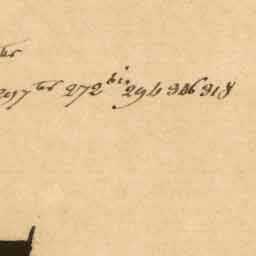 ter
297 ter 272 bis 294 306 318